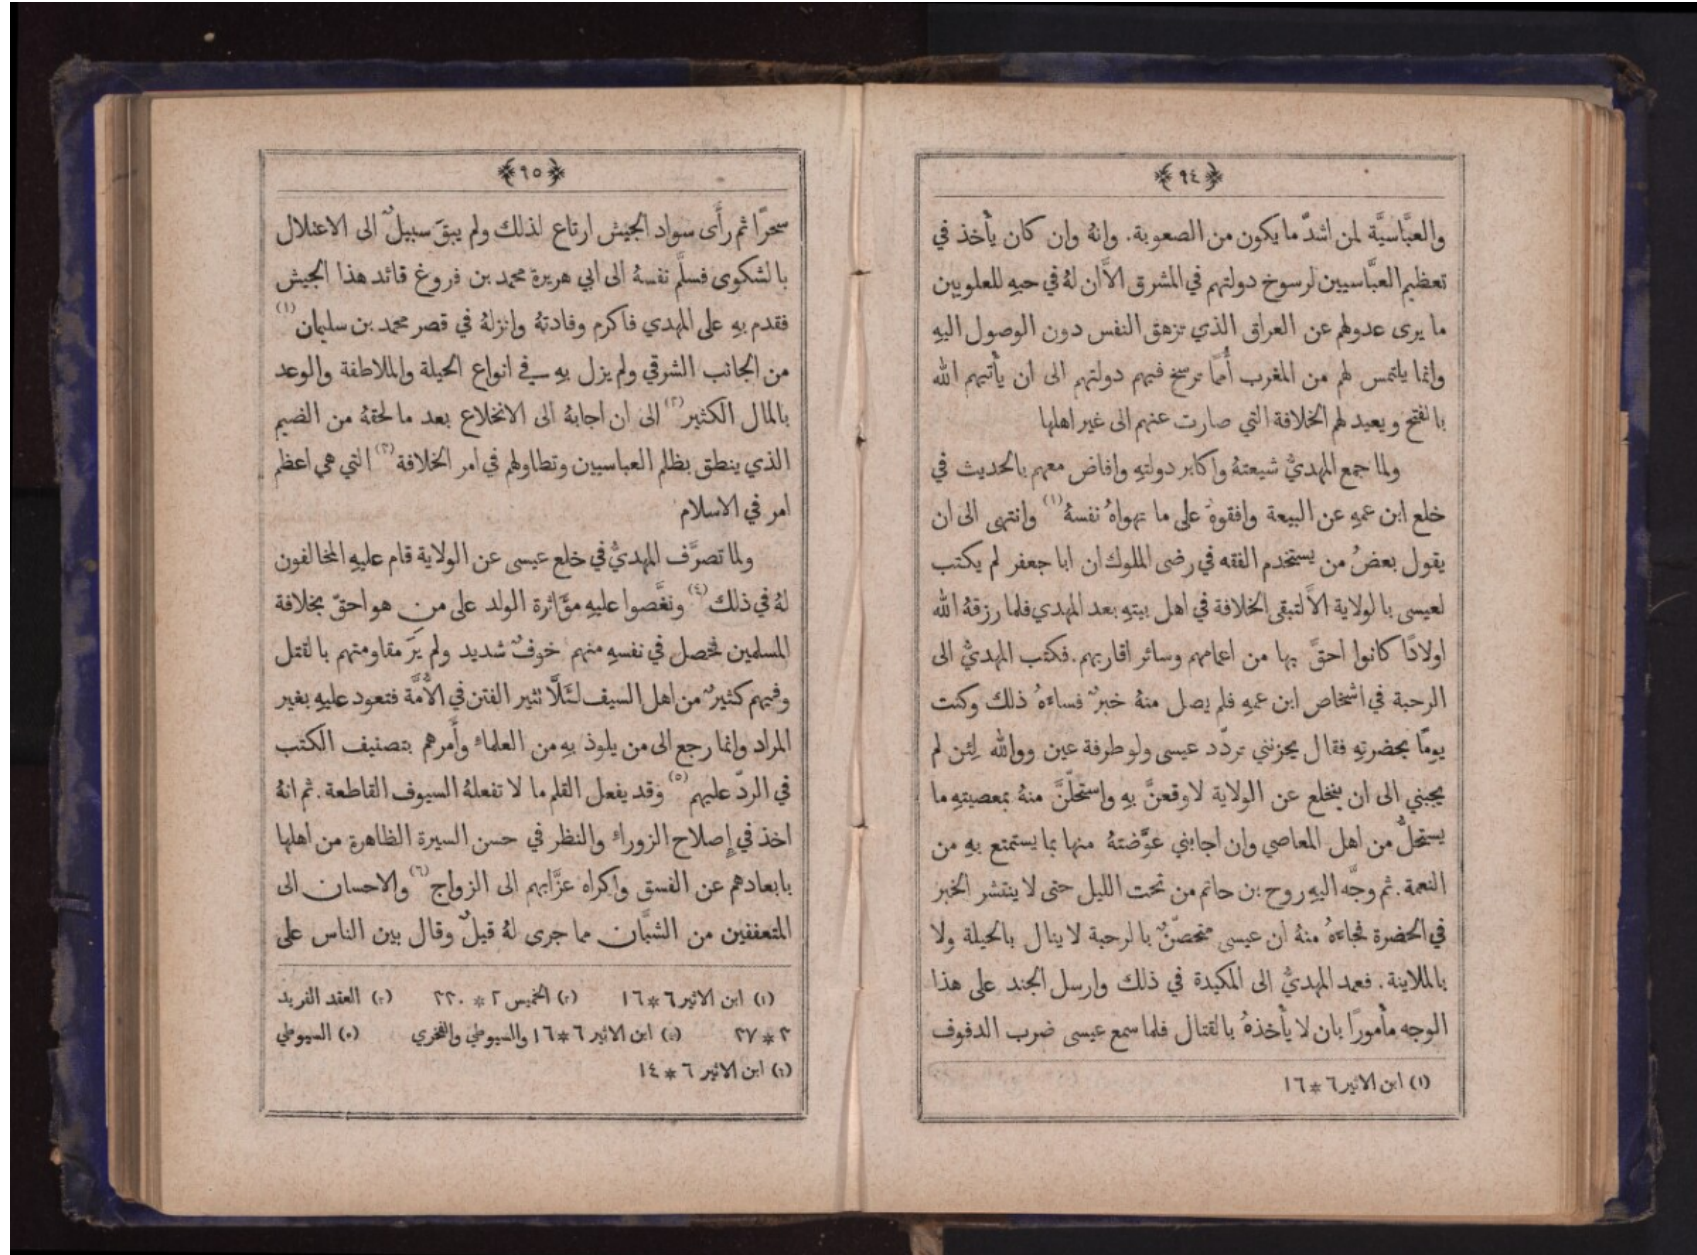 ﴿٩٤﴾
والعبَّاسيَّة لمن اشدّ ما يكون من الصعوبة. وانهُ وان كان يأخذ في
تعظيم العبَّاسيين لرسوخ دولتهم في المشرق الاَّ ان لهُ في حبهِ للعلويين
ما يرى عدولهم عن العراق الذي تزهق النفس دون الوصول اليهِ
وانما يلتمس لهم من المغرب أممًا ترسخ فيهم دولتهم الى ان يأتيهم الله
بالفتح ويعيد لهم الخلافة التي صارت عنهم الى غير اهلها
ولما جمع المهديُّ شيعتهُ وأكابر دولتهِ وافاض معهم بالحديث في
خلع ابن عمهِ عن البيعة وافقوهُ على ما تهواهُ نفسهُ (١) وانتهى الى ان
يقول بعضُ من يستخدم الفقه في رضى الملوك ان ابا جعفر لم يكتب
لعيسى بالولاية الاَّ لتبقى الخلافة في اهل بيتهِ بعد المهدي فلما رزقهُ الله
اولادًا كانوا احقَّ بها من اعمامهم وسائر اقاربهم. فكتب المهديُّ الى
الرحبة في اشخاص ابن عمهِ فلم يصل منهُ خبرٌ فساءهُ ذلك وكنت
يومًا بحضرتهِ فقال يحزنني تردّد عيسى ولو طرفة عين ووالله لئن لم
يجبني الى ان ينخلع عن الولاية لاوقعنَّ بهِ واستحلّنَّ منهُ بمعصيتهِ ما
يستحلُّ من اهل المعاصي وان اجابني عوَّضتهُ منها بما يستمتع بهِ من
النعمة. ثم وجَّه اليهِ روح بن حاتم من تحت الليل حتى لا ينتشر الخبر
في الحضرة فجاءهُ منهُ ان عيسى متحصّنٌ بالرحبة لا ينال بالحيلة ولا
بالملاينة. فعمد المهديُّ الى المكيدة في ذلك وارسل الجند على هذا
الوجه مأمورًا بان لا يأخذهُ بالقتال فلما سمع عيسى ضرب الدفوف
(١) ابن الاثير ٦ * ١٦
﴿٩٥﴾
سحرًا ثم رأَى سواد الجيش ارتاع لذلك ولم يبقَ سبيلٌ الى الاعتلال
بالشكوى فسلَّم نفسهُ الى ابي هريرة محمد بن فروغ قائد هذا الجيش
فقدم بهِ على المهدي فاكرم وفادتهُ وانزلهُ في قصر محمد بن سليمان (١)
من الجانب الشرقي ولم يزل بهِ في انواع الحيلة والملاطفة والوعد
بالمال الكثير (٢) الى ان اجابهُ الى الانخلاع بعد ما لحقهُ من الضيم
الذي ينطق بظلم العباسيين وتطاولهم في امر الخلافة (٣) التي هي اعظم
امر في الاسلام
ولما تصرَّف المهديُّ في خلع عيسى عن الولاية قام عليهِ المخالفون
لهُ في ذلك (٤) ونغَّصوا عليهِ مؤَاثرة الولد على من هو احقّ بخلافة
المسلمين فحصل في نفسهِ منهم خوفٌ شديد ولم يرَ مقاومتهم بالقتل
وفيهم كثيرٌ من اهل السيف لئَلَّا تثير الفتن في الأُمَّة فتعود عليهِ بغير
المراد وانما رجع الى من يلوذ بهِ من العلماء وأَمرهم بتصنيف الكتب
في الردّ عليهم (٥) وقد يفعل القلم ما لا تفعلهُ السيوف القاطعة. ثم انهُ
اخذ في إِصلاح الزوراء والنظر في حسن السيرة الظاهرة من اهلها
بابعادهم عن الفسق وإكراه عزَّابهم الى الزواج (٦) والاحسان الى
المتعففين من الشبَّان مما جرى لهُ قيلٌ وقال بين الناس على
(١) ابن الاثير ٦ * ١٦ (٢) الخميس ٢ * ٣٣٠ (٣) العقد الفريد
٣ * ٣٧ (٤) ابن الاثير ٦ * ١٦ والسيوطي والفخري (٥) السيوطي
(٦) ابن الاثير ٦ * ١٤